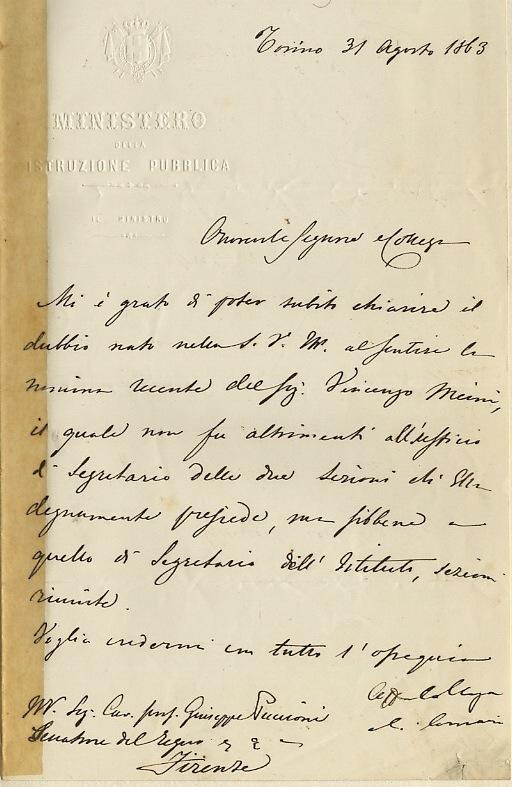 Torino 31 Agosto 1863
MINISTERO
DELLA
ISTRUZIONE PUBBLICA
IL MINISTRO
Onorevole Signore e Collega
Mi è grato di poter subito chiarire il
dubbio nato nella S. V. Ill. al sentire la
nomina recente del Sig. Vincenzo Meini,
il quale non fu altrimenti all'ufficio
di Segretario delle due sezioni ch'Ella
degnamente presiede, ma sibbene a
quello di Segretario dell'Istituto, sezioni
riunite.
Voglia credermi con tutto l'ossequio
Aff. Collega
Ill. Sig. Cav. prof. Giuseppe Puccioni
Senatore del Regno
Firenze